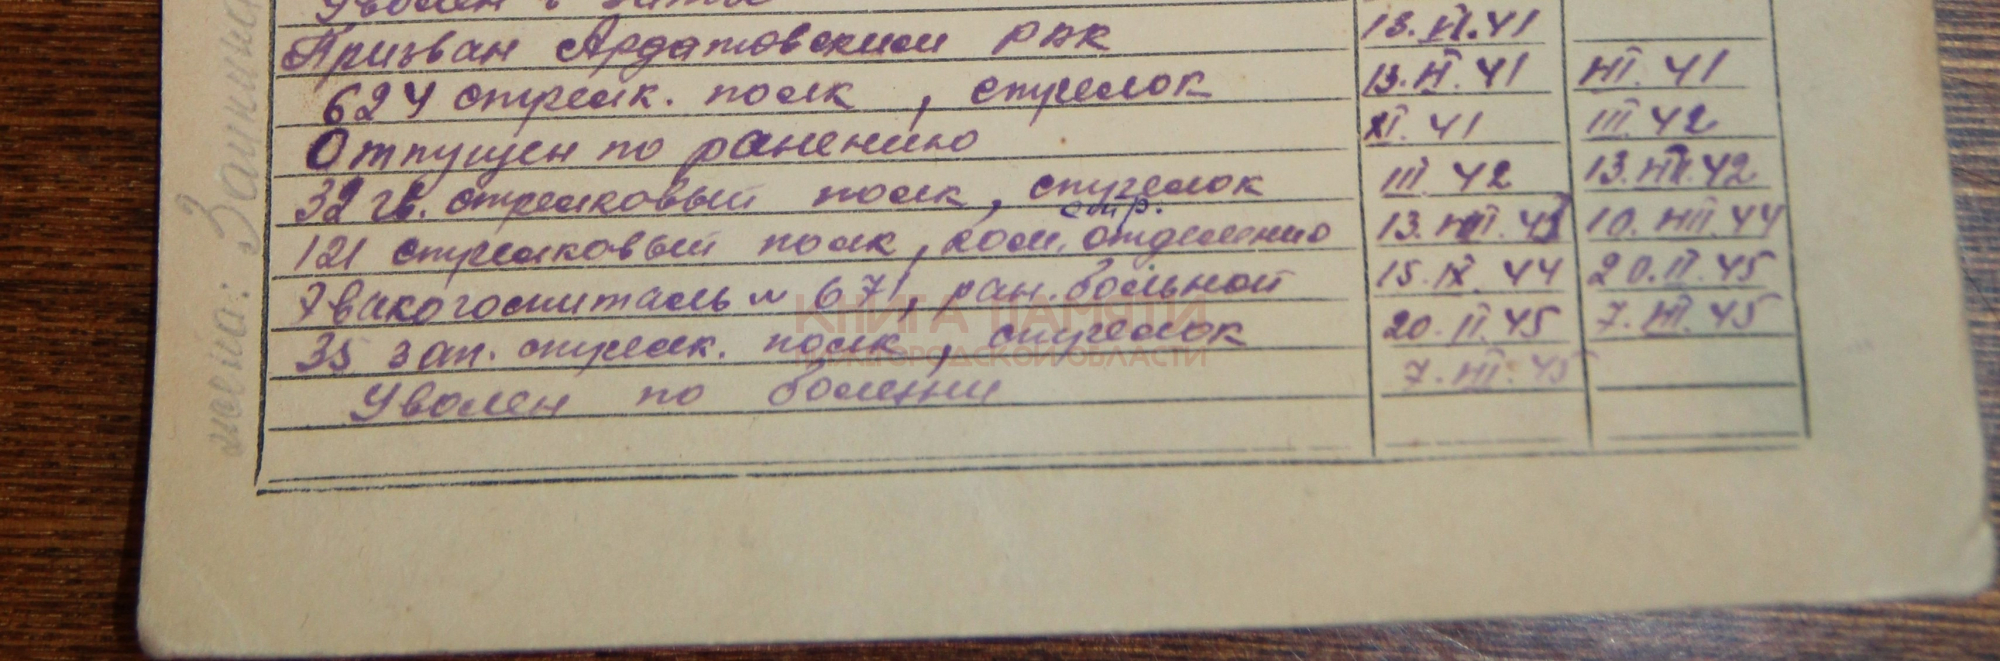 Уволен в запас
Призван Ардатовским РВК 13.VI.41
624 стрелк. полк, стрелок 13.VI.41 VII.41
Отпущен по ранению XI.41 III.42
32 гв. стрелковый полк, стрелок III 42 13.VII.42
стр.
121 стрелковый полк, ком. отделению 13.VIII.43 10.VIII.44
Эвакогоспиталь № 671, ран. больной 15.IX.44 20.II.45
35 зап. стрелк. полк, стрелок 20.II.45 7.III.45
Уволен по болезни 7.III.45
жена:
КНИГА ПАМЯТИ
НИЖЕГОРОДСКОЙ ОБЛАСТИ